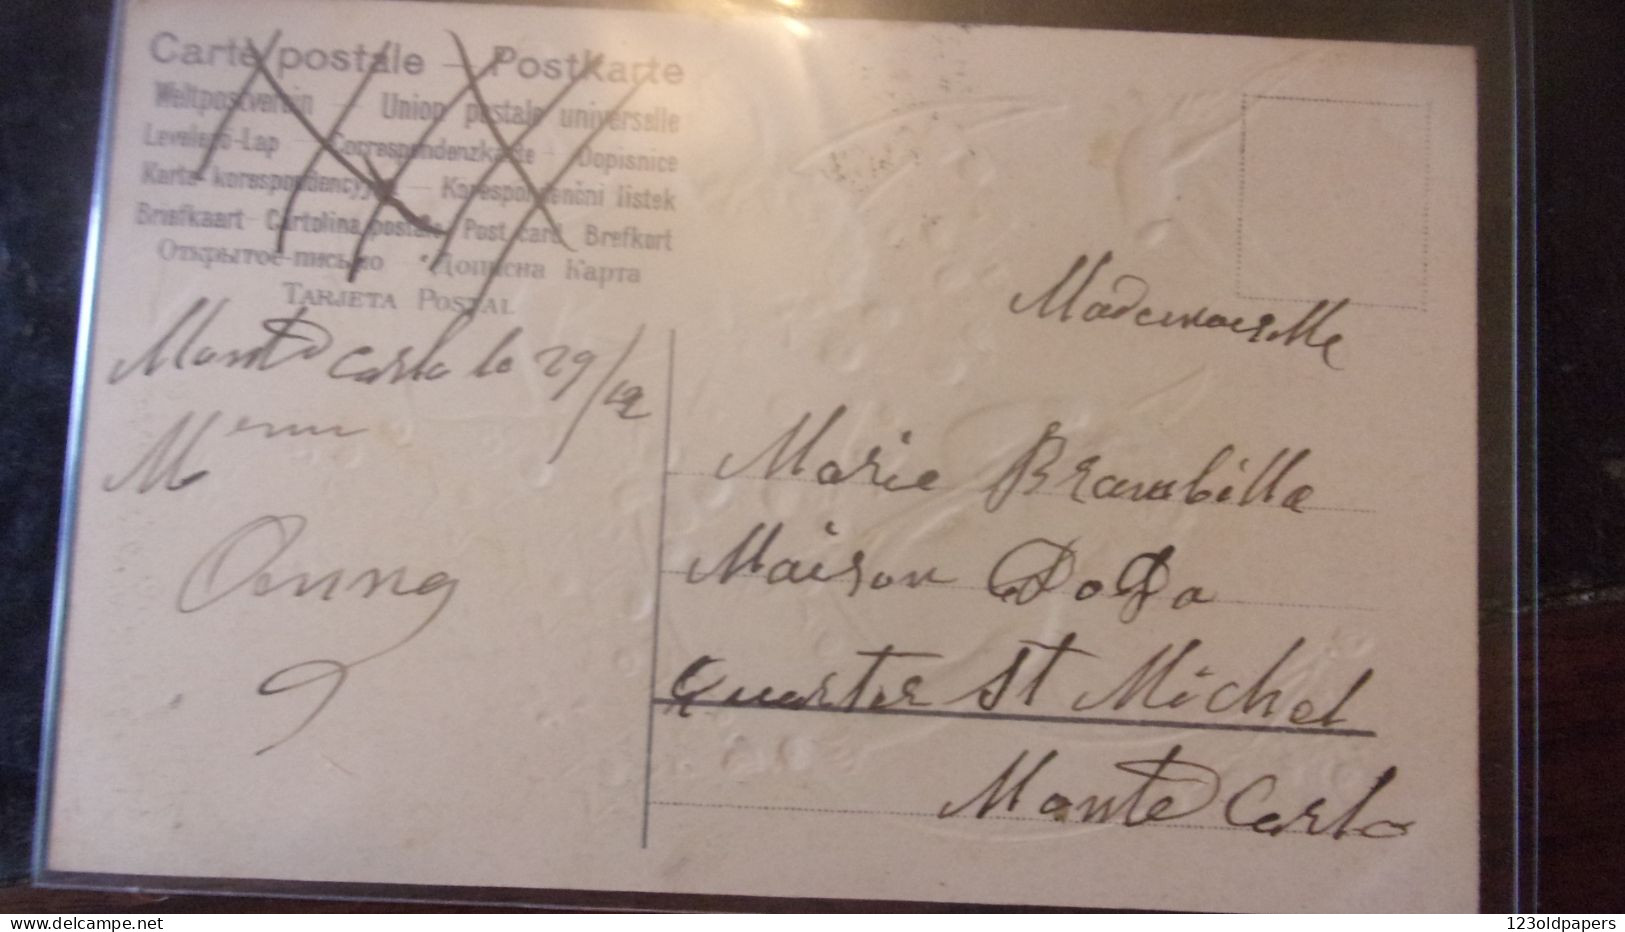 Carte postale – Postkarte
Weltpostverein – Union postale universelle
Levelező-Lap – Correspondenzkarte – Dopisnice
Karta korespondencyjna – Korespondenční listek
Briefkaart – Cartolina postale – Post card – Brefkort
Открытое письмо – Дописна Карта
TARJETA POSTAL
Monte Carlo le 29/12
Mademoiselle
Marie Brambilla
Maison
Quartier St Michel
Monte Carlo
123oldpapers